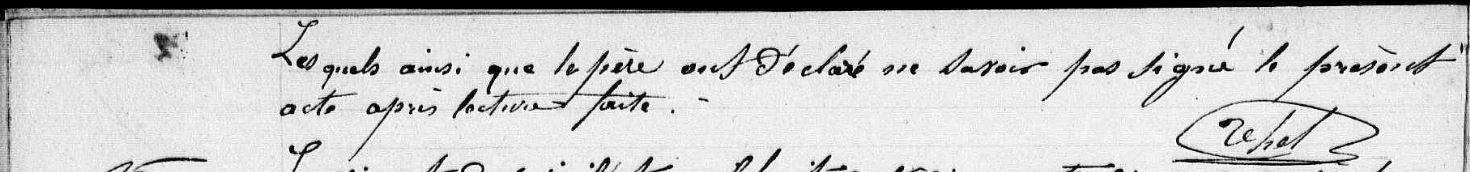 Lesquels ainsi que le père ont déclaré ne savoir pas signé le présent
acte après lecture faite. -